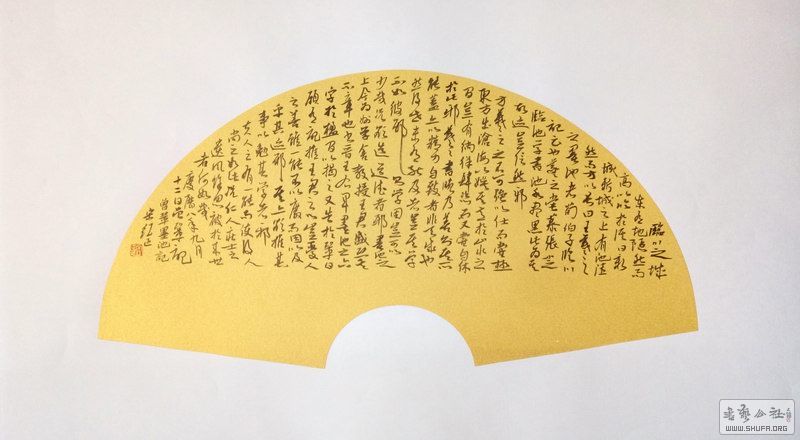 臨川之城
東有地隱然而
高以臨於溪曰新
城新城之上有池洼
然而方以長曰王羲之
之墨池者荀伯子臨川
記云也羲之嘗慕張芝
臨池學書池水盡黑此為其
故迹豈信然邪
方羲之之不可強以仕而嘗極
東方出滄海以娛其意於山水之
間豈有徜徉肆恣而又嘗自休
於此邪羲之之書晚乃善則其所
能蓋亦以精力自致者非天成也
然後世未有能及者豈其學
不如彼邪則學固豈可以
少哉況欲深造道德者邪墨池之
上今為州學舍教授王君盛恐其
不章也書晉王右軍墨池之六
字於楹間以揭之又告於鞏曰
願有記推王君之心豈愛人
之善雖一能不以廢而因以及
乎其迹邪其亦欲推其
事以勉其學者邪
夫人之有一能而使後人
尚之如此況仁人莊士之
遺風餘思被於來世
者何如哉
慶曆八年九月
十二日曾鞏記
曾鞏墨池記
書藝公社
WWW.SHUFA.ORG